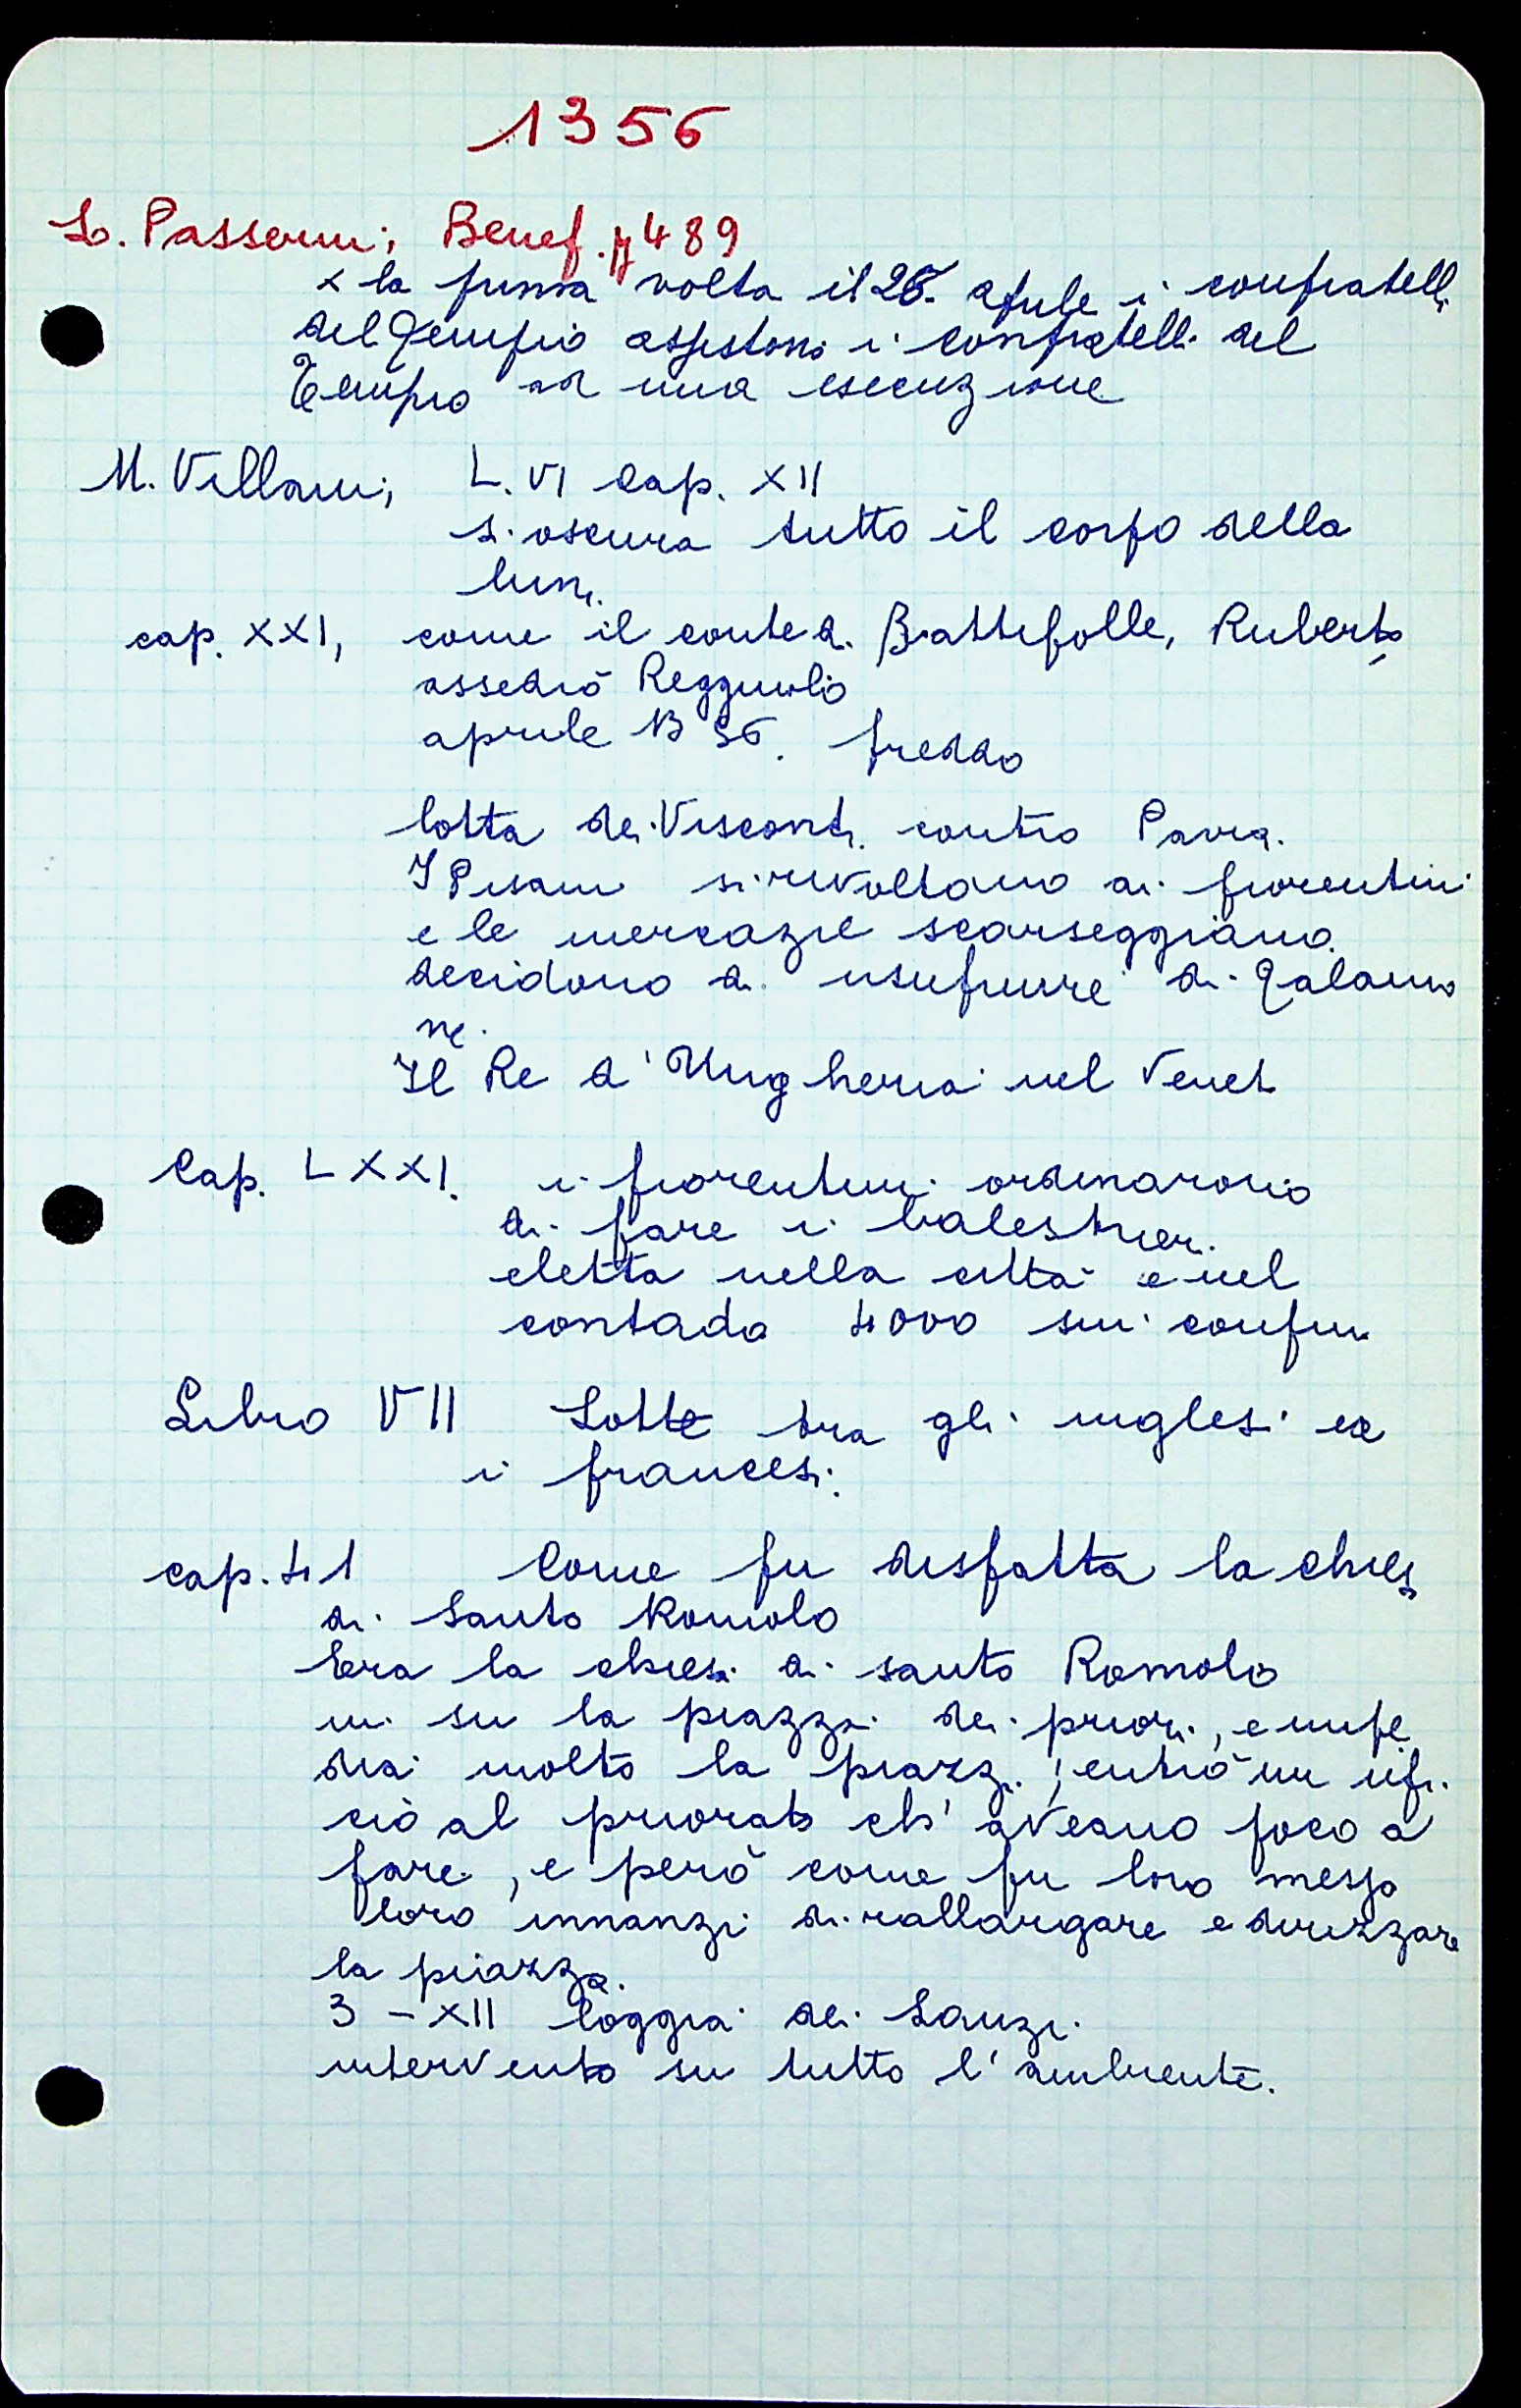 1356
L. Passerini, Benef. p 489
x la prima volta il 26 aprile i confratelli
del Tempio assistono i confratelli del
Tempio ad una esecuzione
M. Villani, L. VI Cap. XII
si oscura tutto il corpo della
luna.
cap. XXI, come il conte di Battifolle, Ruberto
assediò Reggiuolo
aprile 1356. freddo
lotta dei Visconti contro Pavia.
I Pisani si rivoltano ai fiorentini
e le mercazie scarseggiano.
decidono di usufruire di Talamo
ne.
Il Re d'Ungheria nel Veneto
Cap. LXXI. i fiorentini ordinarono
di fare i balestrieri.
eletta nella città e nel
contado 4000 sui confini
Libro VII Lotte tra gli inglesi ed
i francesi.
cap. 41 Come fu disfatta la chiesa
di Santo Romolo
Era la chiesa di santo Romolo
in su la piazza dei priori, e impe
dia molto la piazza; entrò un ufi.
cio al priorato ch'aveano poco a
fare, e però come fu loro messo
loro innanzi di rallargare e dirizzare
la piazza.
3 - XII loggia dei Lanzi.
intervento su tutto l'ambiente.